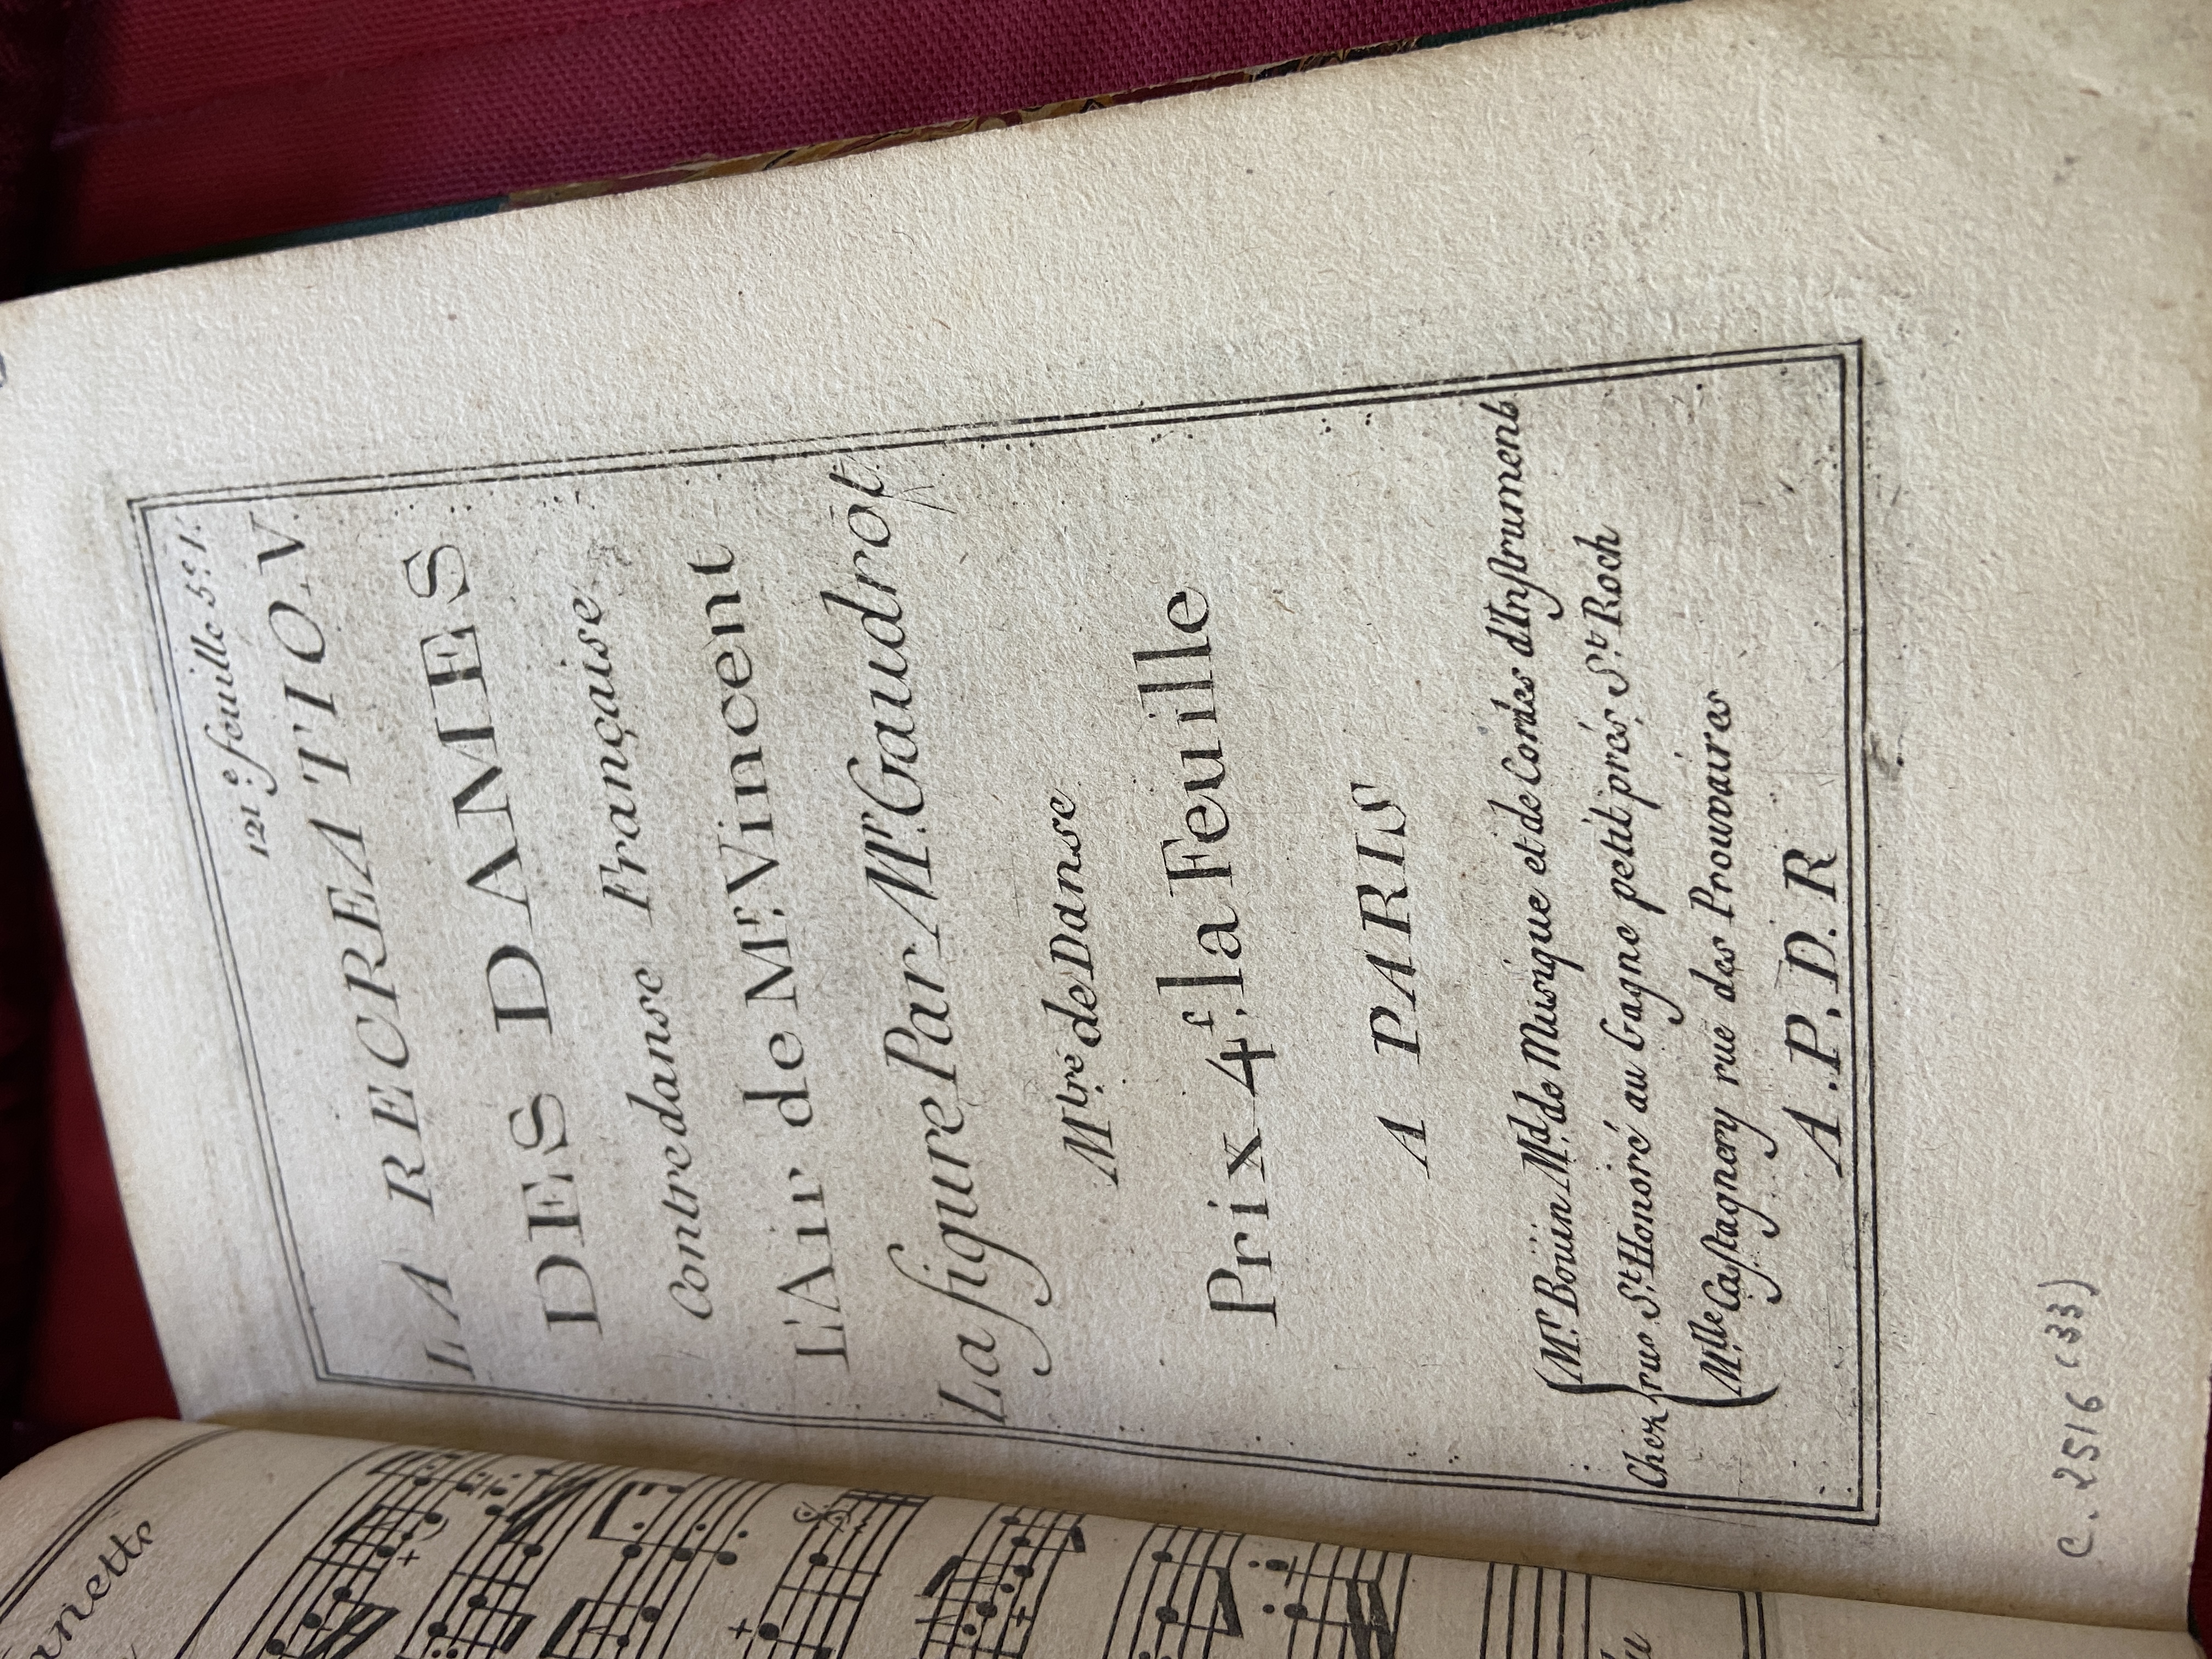 121.e feuille 5.e 1.
LA RECREATION
DES DAMES
Contredanse Française
L'Air de Mr. Vincent
La figure Par Mr. Gaudrot
Mtre. de Danse
Prix 4f. la Feuille
A PARIS
Mr. Boüin Md. de Musique et de Cordes d'Instruments
Chez rue St. Honoré au Gagne petit prés St. Roch
Mlle Castagnery rue des Prouvaires
A.P.D.R
C. 2516 (33)
anette